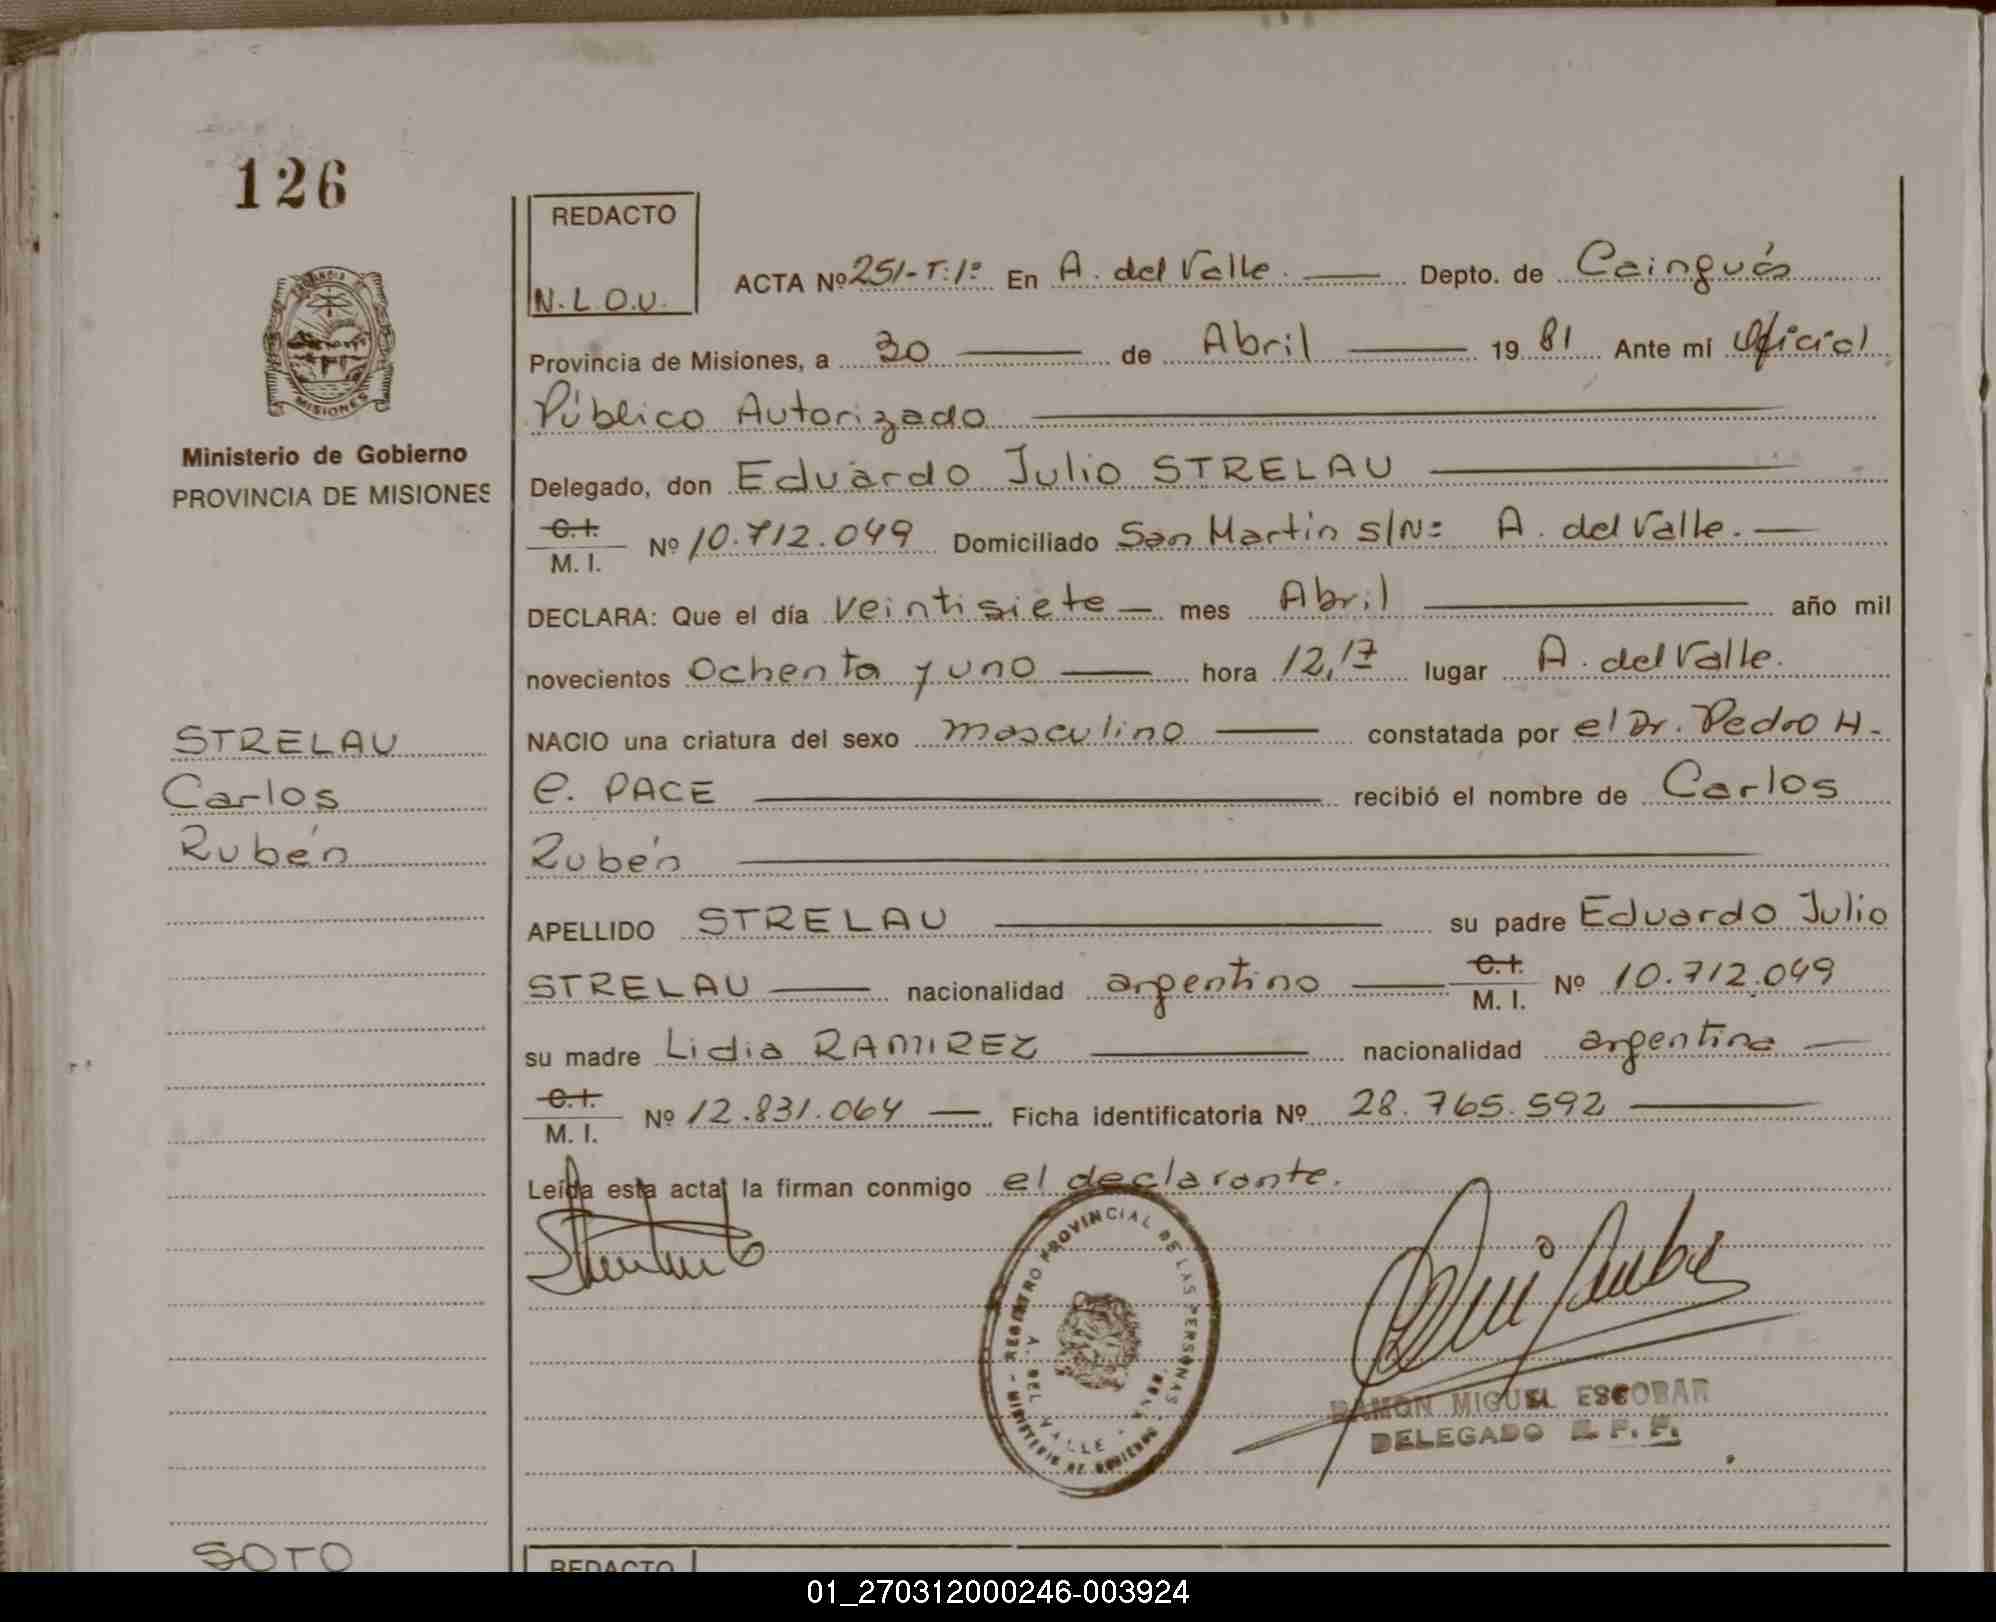 126
REDACTO
N.L.O.V.
ACTA Nº 251-T:1º En A. del Valle. Depto. de Cainguás
Provincia de Misiones, a 30 de Abril 19 81 Ante mí Oficial
Público Autorizado
MISIONES
Ministerio de Gobierno
PROVINCIA DE MISIONES
Delegado, don Eduardo Julio STRELAU
C.I.
M. I. Nº 10.712.049 Domiciliado San Martin s/Nº A. del Valle.
DECLARA: Que el día veintisiete mes Abril año mil
novecientos ochenta y uno hora 12,17 lugar A. del Valle.
STRELAU
Carlos
Rubén
NACIO una criatura del sexo masculino constatada por el Dr. Pedro H.
E. PACE recibió el nombre de Carlos
Rubén
APELLIDO STRELAU su padre Eduardo Julio
STRELAU nacionalidad argentino C.I. M. I. Nº 10.712.049
su madre Lidia RAMIREZ nacionalidad argentina
C.I.
M. I. Nº 12.831.064 Ficha identificatoria Nº 28.765.592
Leída esta acta, la firman conmigo el declarante.
REGISTRO PROVINCIAL DE LAS PERSONAS
A. DEL VALLE
MINISTERIO DE GOBIERNO
RAMON MIGUEL ESCOBAR
DELEGADO R. P. P.
SOTO
REDACTO
01_270312000246-003924